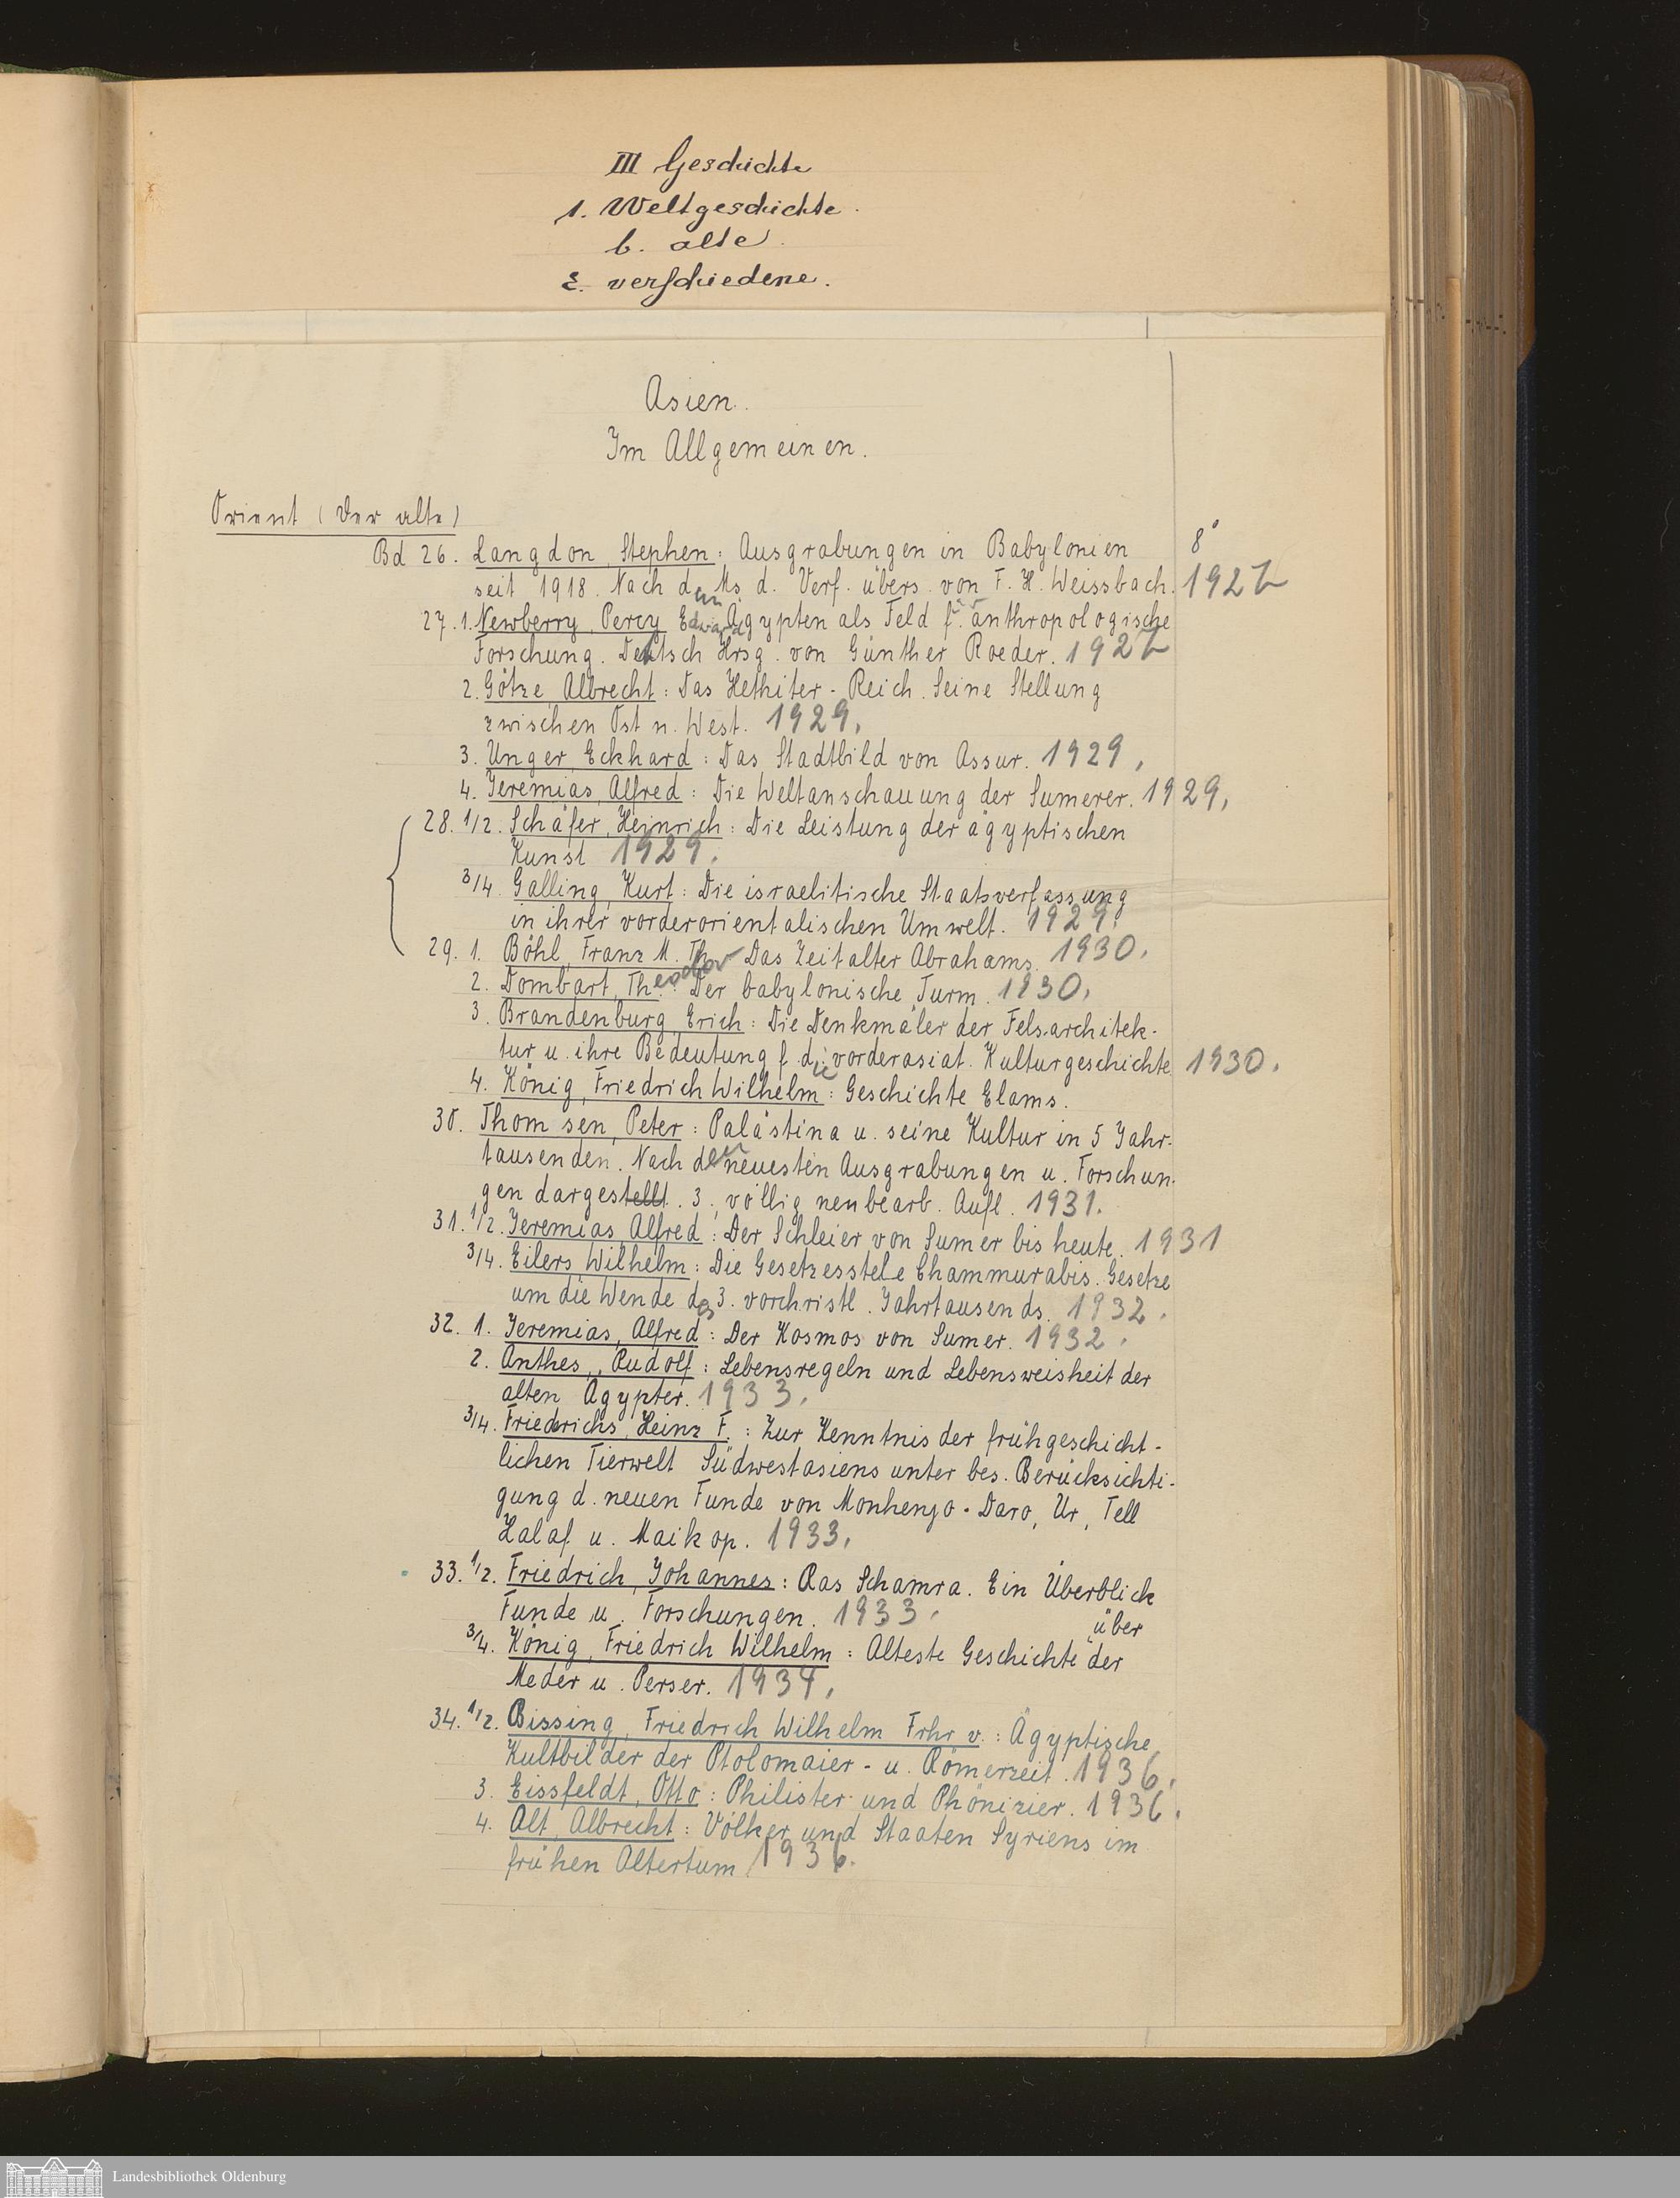 III Geschichte
1. Weltgeschichte.
b. alte
ε. verschiedene.
Asien.
Im Allgemeinen.
Orient (Der alte)
Bd 26. Langdon, Stephen: Ausgrabungen in Babylonien 8°
seit 1918. Nach dem Ms. d. Verf. übers. von F. H. Weissbach. 1927
27. 1. Newberry, Percy Edward Ägypten als Feld f. anthropologische
Forschung. Deutsch Hrsg. von Günther Roeder. 1927
2. Götze, Albrecht: Das Hethiter-Reich. Seine Stellung
zwischen Ost u. West. 1929.
3. Unger, Eckhard: Das Stadtbild von Assur. 1929.
4. Jeremias, Alfred: Die Weltanschauung der Sumerer. 1929.
28. 1/2. Schäfer, Heinrich: Die Leistung der ägyptischen
Kunst 1929.
3/4. Galling, Kurt: Die israelitische Staatsverfassung
in ihrer vorderorientalischen Umwelt. 1929.
29. 1. Böhl, Franz M. Th. Das Zeitalter Abrahams. 1930.
2. Dombart, Theodor Der babylonische Turm. 1930.
3. Brandenburg, Erich: Die Denkmäler der Felsarchitek-
tur u. ihre Bedeutung f. die vorderasiat. Kulturgeschichte 1930.
4. König, Friedrich Wilhelm: Geschichte Elams.
30. Thomsen, Peter: Palästina u. seine Kultur in 5 Jahr-
tausenden. Nach den neuesten Ausgrabungen u. Forschun-
gen dargestellt. 3., völlig neubearb. Aufl. 1931.
31. 1/2. Jeremias, Alfred: Der Schleier von Sumer bis heute. 1931
3/4. Eilers Wilhelm: Die Gesetzesstele Chammurabis. Gesetze
um die Wende des 3. vorchristl. Jahrtausends. 1932.
32. 1. Jeremias, Alfred: Der Kosmos von Sumer. 1932.
2. Anthes, Rudolf: Lebensregeln und Lebensweisheit der
alten Ägypter. 1933.
3/4. Friederichs, Heinz F.: Zur Kenntnis der frühgeschicht-
lichen Tierwelt Südwestasiens unter bes. Berücksichti-
gung d. neuen Funde von Monhenjo-Daro, Ur, Tell
Halaf u. Maikop. 1933.
33. 1/2. Friedrich, Johannes: Ras Schamra. Ein Überblick
über
Funde u. Forschungen. 1933.
3/4. König, Friedrich Wilhelm: Älteste Geschichte der
Meder u. Perser. 1934.
34. 1/2. Bissing, Friedrich Wilhelm Frhr v.: Ägyptische
Kultbilder der Ptolomaier- u. Römerzeit. 1936.
3. Eissfeldt, Otto: Philister und Phönizier. 1936.
4. Alt, Albrecht: Völker und Staaten Syriens im
frühen Altertum 1936.
Landesbibliothek Oldenburg